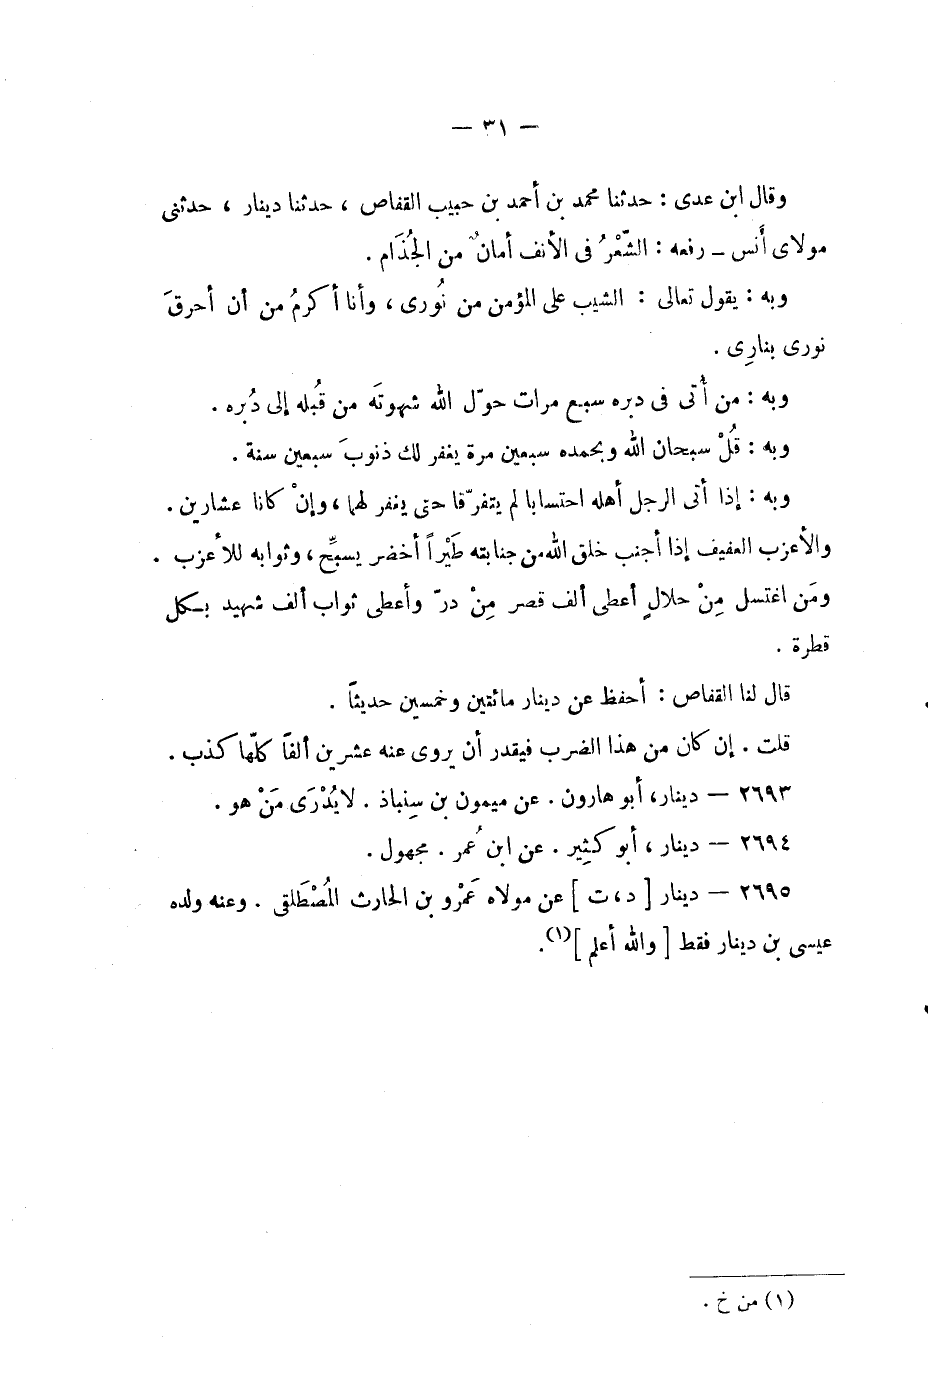 — ٣١ —
وقال ابن عدى : حدثنا محمد بن أحمد بن حبيب القفاص ، حدثنا دينار ، حدثنى
مولاى أَنس — رفعه : الشّعْرُ فى الأنف أمانٌ من الجُذَام .
وبه : يقول تعالى : الشيب على المؤمن من نُورى ، وأنا أكرمُ من أن أحرقَ
نورى بنارِى .
وبه : من أُتى فى دبره سبع مرات حوّل الله شهوتَه من قُبله إلى دُبره .
وبه : قُلْ سبحان الله وبحمده سبعين مرة يغفر لك ذنوبَ سبعين سنة .
وبه : إذا أتى الرجل أهله احتسابا لم يتفرّقا حتى يغفر لهما ، وإنْ كانا عشارين .
والأعزب العفيف إذا أجنب خلق الله من جنابته طَيْراً أخضر يسبِّح ، وثوابه للأعزب .
ومَن اغتسل مِنْ حلالٍ أعطى ألف قصر مِنْ درّ وأعطى ثواب ألف شهيد بكل
قطرة .
قال لنا القفاص : أحفظ عن دينار مائتين وخمسين حديثاً .
قلت . إن كان من هذا الضرب فيقدر أن يروى عنه عشرين ألفاً كلّها كذب .
٢٦٩٣ — دينار، أبو هارون . عن ميمون بن سِنباذ . لا يُدْرَى مَنْ هو .
٢٦٩٤ — دينار ، أبو كثِير . عن ابن عُمر . مجهول .
٢٦٩٥ — دينار [ د ، ت ] عن مولاه عَمْرو بن الحارث المُصْطَلقى . وعنه ولده
عيسى بن دينار فقط [ والله أعلم ](١).
(١) من خ .